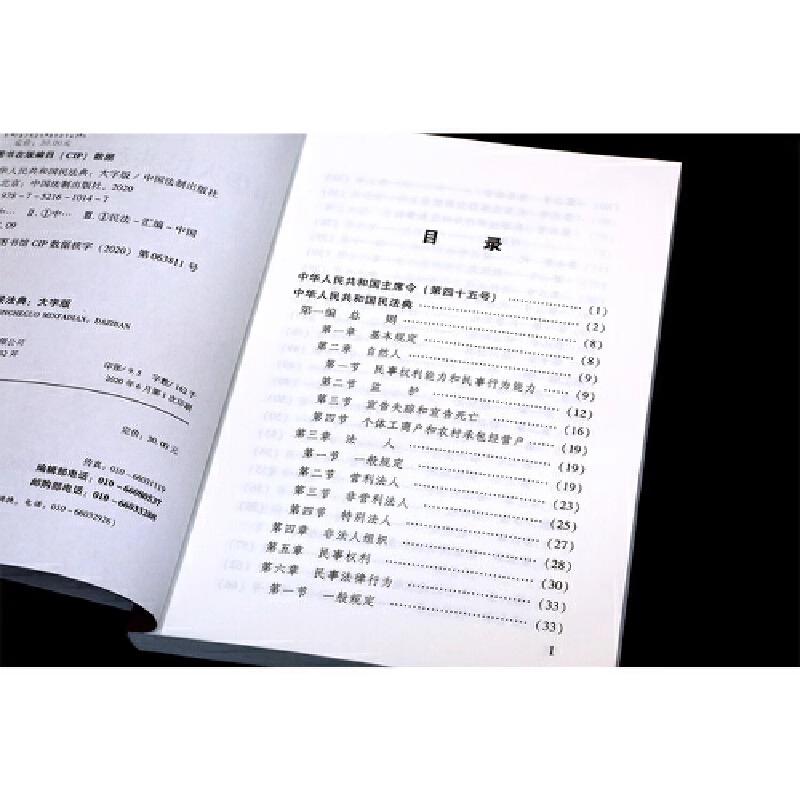 定价：30.00元
图书在版编目（CIP）数据
华人民共和国民法典：大字版／中国法制出版社
北京：中国法制出版社，2020
978－7－5216－1014－7
Ⅱ.①中… Ⅲ.①民法－汇编－中国
图书馆CIP数据核字（2020）第063811号
民法典：大字版
印张/9.5 字数/162千
2020年6月第1次印刷
定价：30.00元
传真：010-66031119
编辑部电话：
邮购部电话：010-66033288
电话：010-66032926）
目 录
中华人民共和国主席令（第四十五号）……（1）
中华人民共和国民法典……（2）
第一编 总 则……（8）
第一章 基本规定……（8）
第二章 自然人……（9）
第一节 民事权利能力和民事行为能力……（9）
第二节 监 护……（12）
第三节 宣告失踪和宣告死亡……（16）
第四节 个体工商户和农村承包经营户……（19）
第三章 法 人……（19）
第一节 一般规定……（19）
第二节 营利法人……（23）
第三节 非营利法人……（25）
第四节 特别法人……（27）
第四章 非法人组织……（28）
第五章 民事权利……（30）
第六章 民事法律行为……（33）
第一节 一般规定……（33）
1